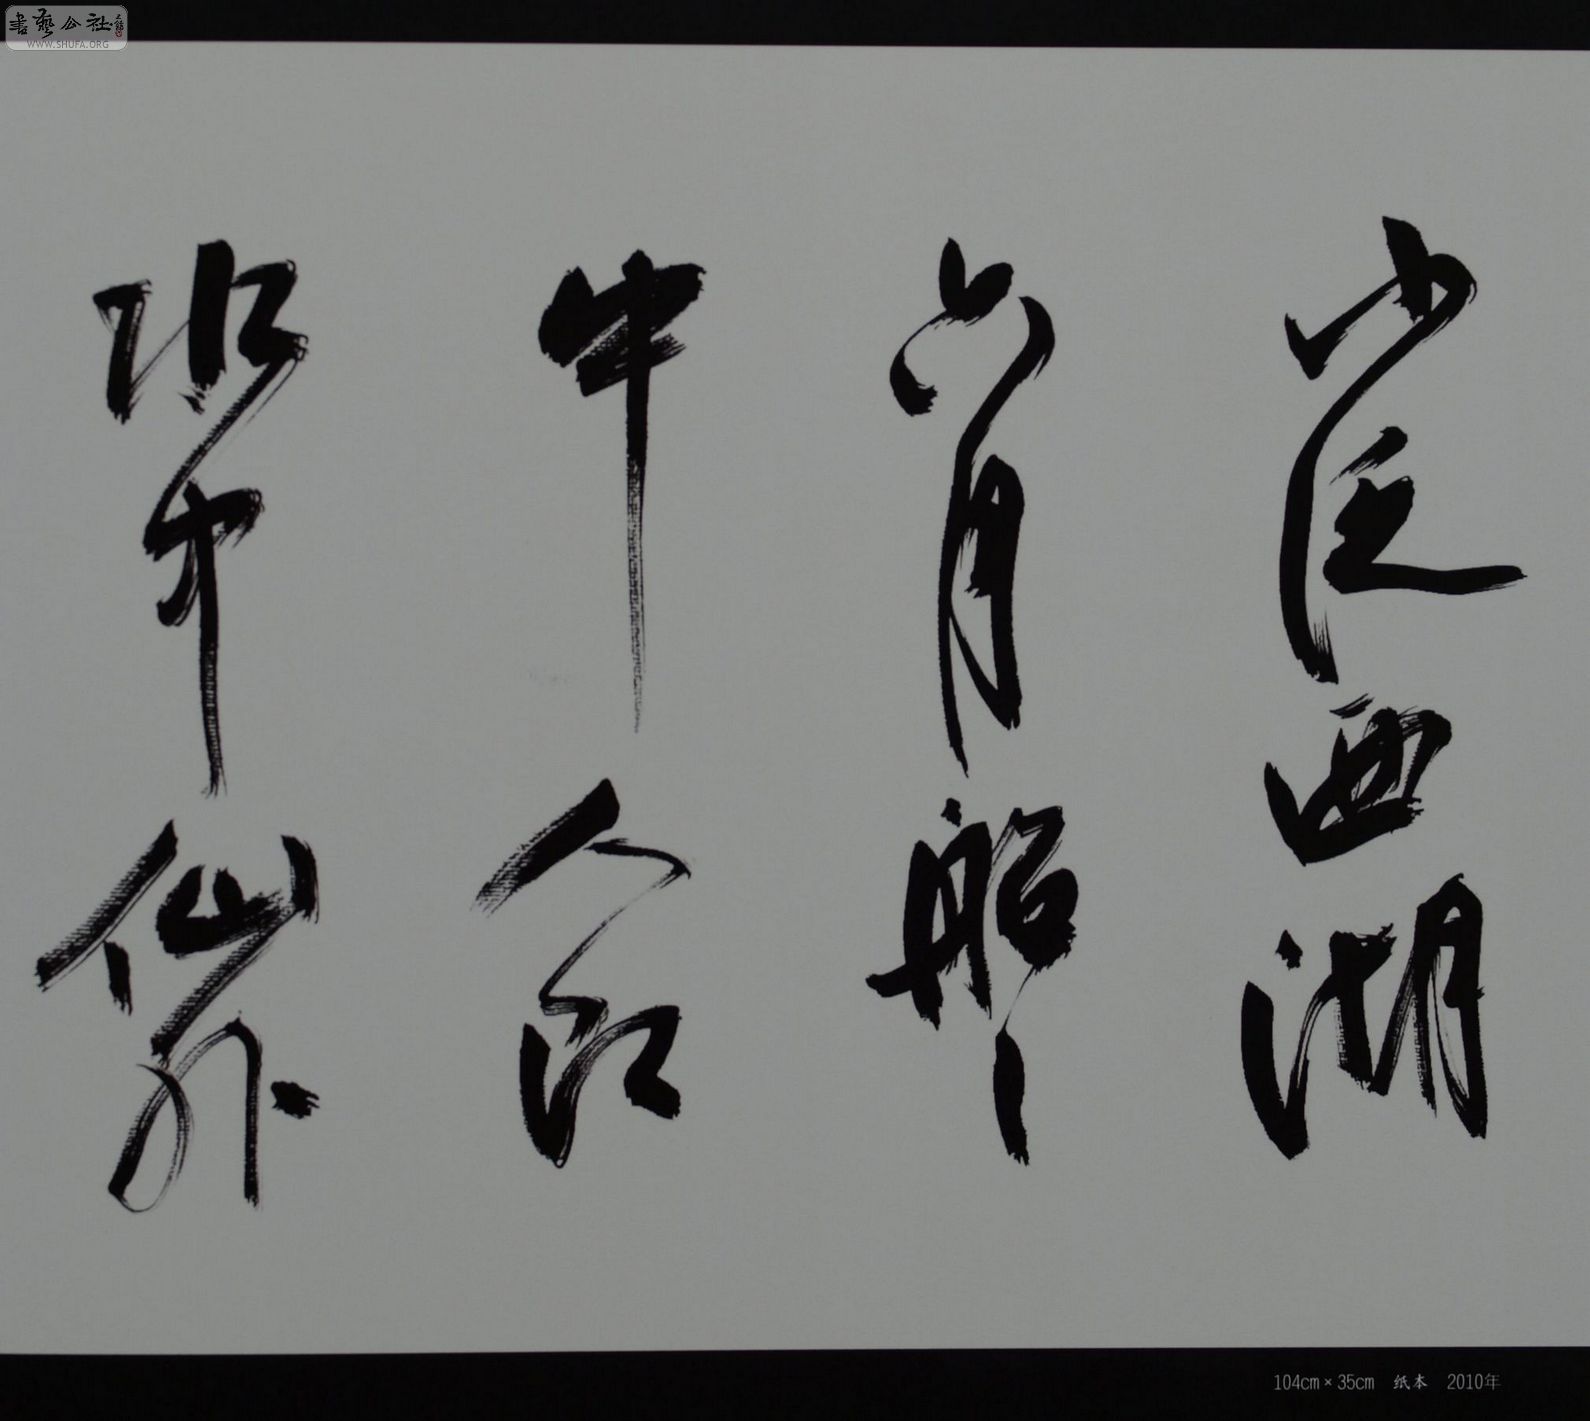 书艺公社
WWW.SHUFA.ORG
小泛西湖
六月船〻
中人即
水中仙外
104cm×35cm 纸本 2010年